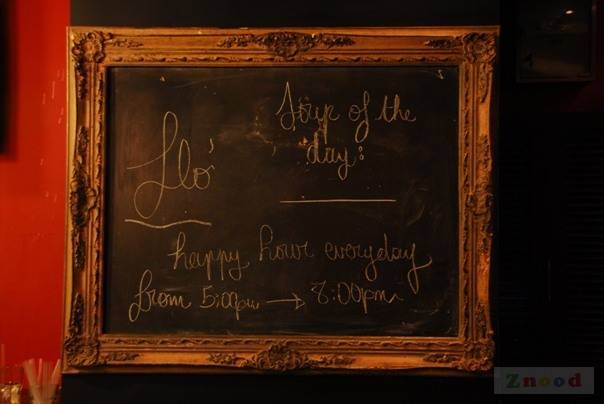 Flo'
Soup of the
day:
happy hour everyday
from 5:00pm → 8:00pm
Znood